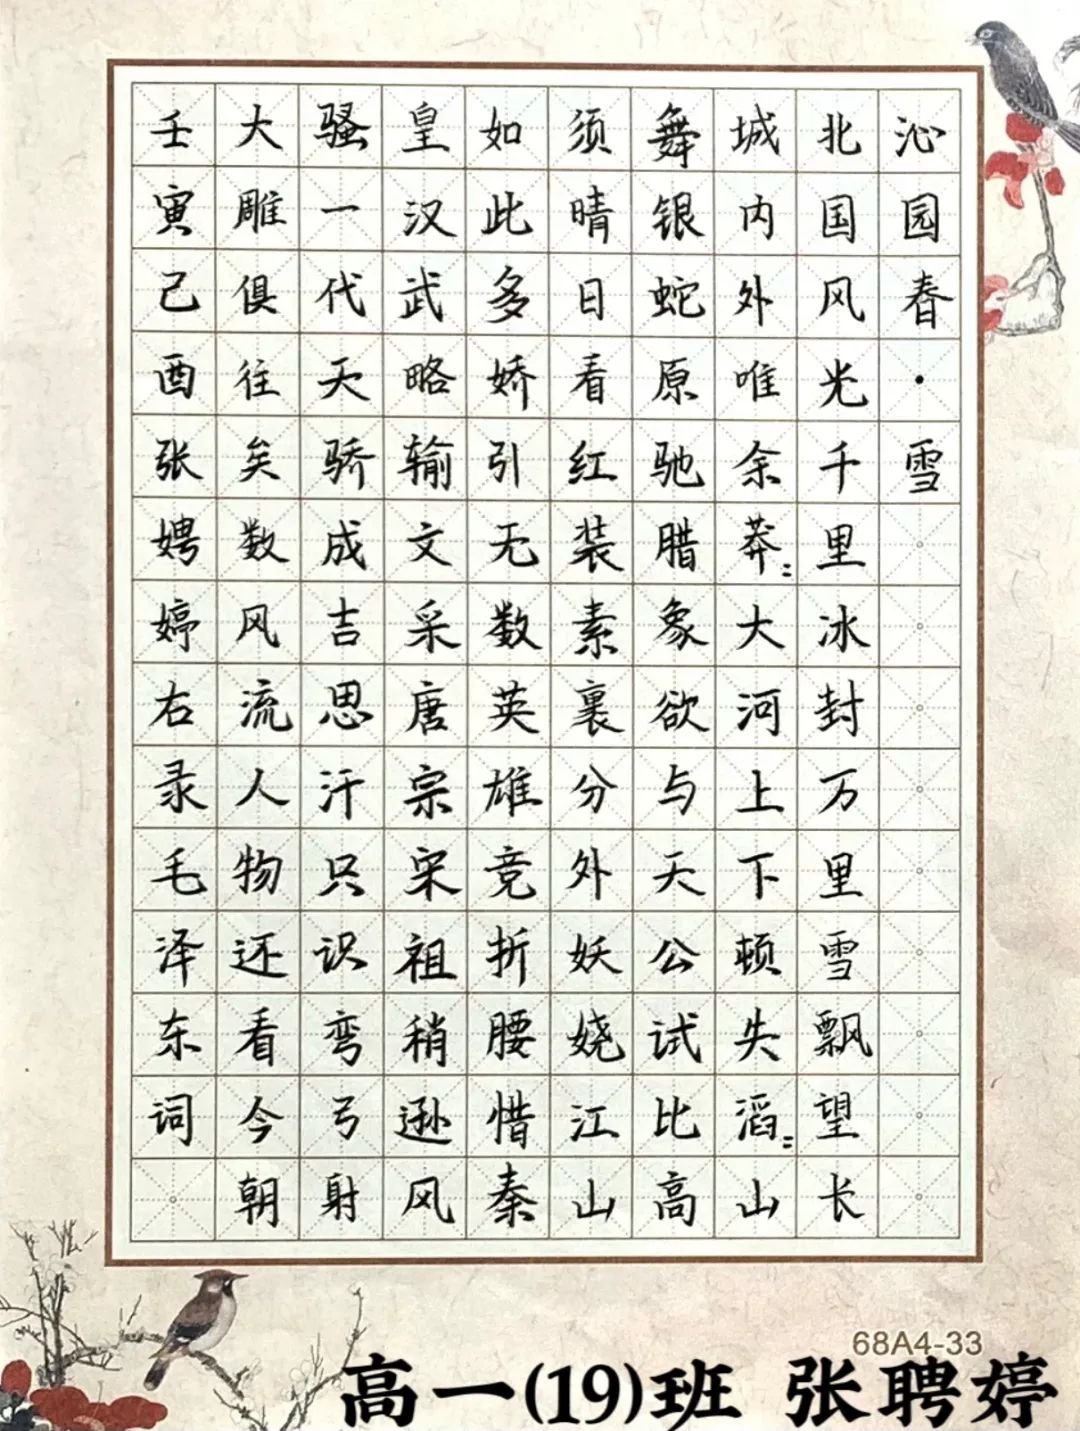 沁园春·雪
北国风光千里冰封万里雪飘望长
城内外唯余莽〻大河上下顿失滔〻山
舞银蛇原驰腊象欲与天公试比高
须晴日看红装素裹分外妖娆江山
如此多娇引无数英雄竞折腰惜秦
皇汉武略输文采唐宗宋祖稍逊风
骚一代天骄成吉思汗只识弯弓射
大雕俱往矣数风流人物还看今朝
壬寅己酉张娉婷右录毛泽东词
68A4-33
高一(19)班 张聘婷